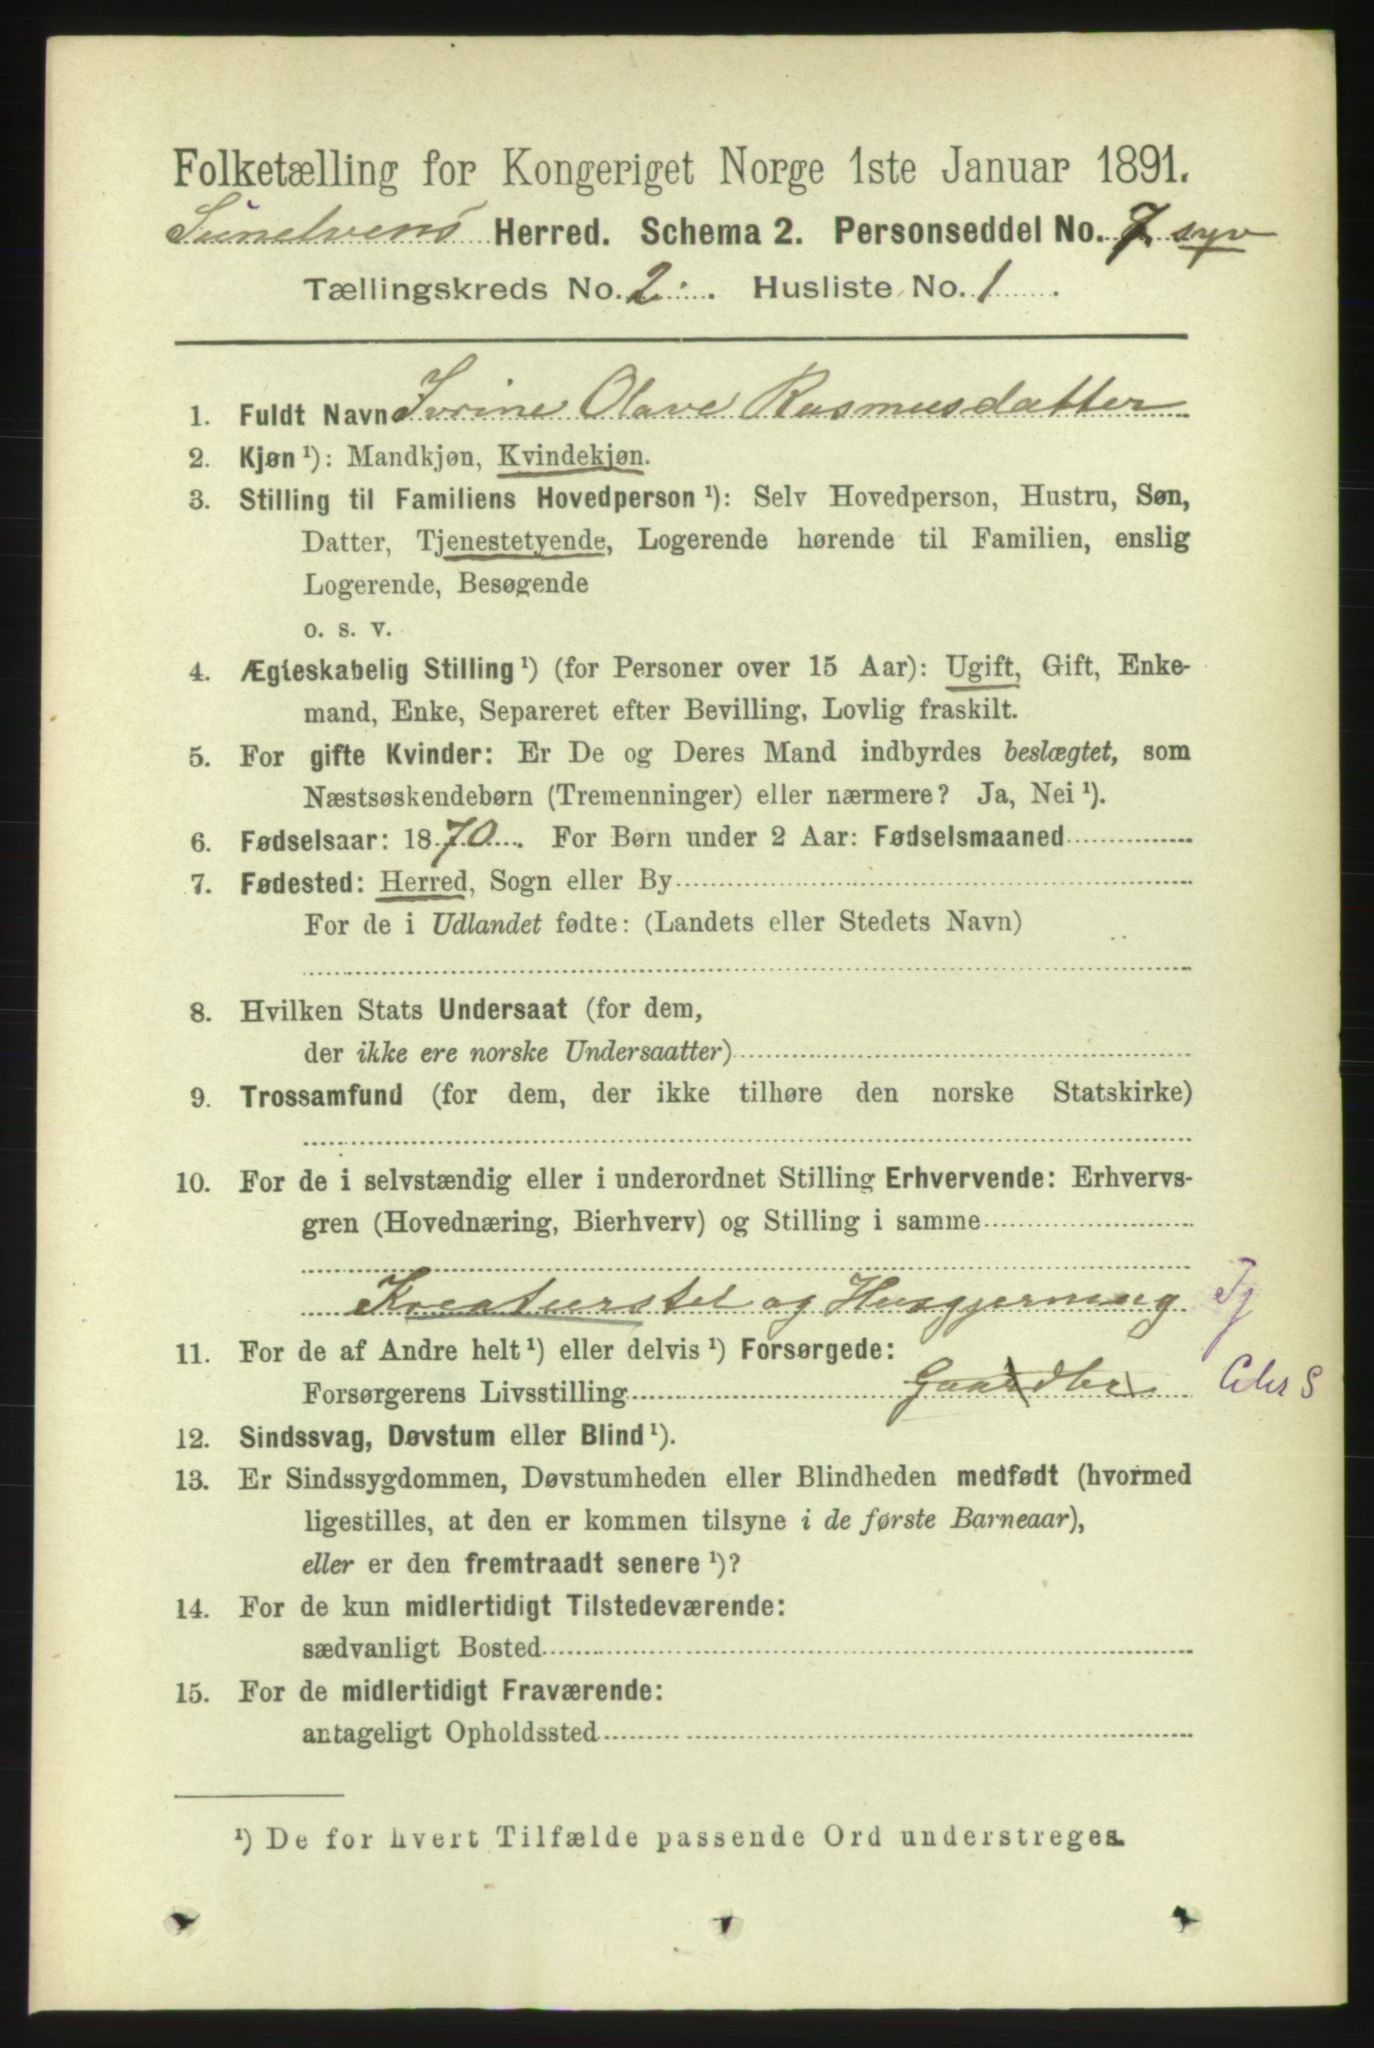 Folketælling for Kongeriget Norge 1ste Januar 1891.
Sunelvens Herred. Schema 2. Personseddel No. 7 syv
Tællingskreds No. 2. Husliste No. 1.
1. Fuldt Navn Ivrine Olave Rasmusdatter
2. Kjøn ¹): Mandkjøn, Kvindekjøn.
3. Stilling til Familiens Hovedperson ¹): Selv Hovedperson, Hustru, Søn,
Datter, Tjenestetyende, Logerende hørende til Familien, enslig
Logerende, Besøgende
o. s. v.
4. Ægteskabelig Stilling ¹) (for Personer over 15 Aar): Ugift, Gift, Enke-
mand, Enke, Separeret efter Bevilling, Lovlig fraskilt.
5. For gifte Kvinder: Er De og Deres Mand indbyrdes beslægtet, som
Næstsøskendebørn (Tremenninger) eller nærmere? Ja, Nei ¹).
6. Fødselsaar: 1870. For Børn under 2 Aar: Fødselsmaaned
7. Fødested: Herred, Sogn eller By
For de i Udlandet fødte: (Landets eller Stedets Navn)
8. Hvilken Stats Undersaat (for dem,
der ikke ere norske Undersaatter)
9. Trossamfund (for dem, der ikke tilhøre den norske Statskirke)
10. For de i selvstændig eller i underordnet Stilling Erhvervende: Erhvervs-
gren (Hovednæring, Bierhverv) og Stilling i samme
Kreaturstel og Husgjerning Tj
11. For de af Andre helt ¹) eller delvis ¹) Forsørgede:
Forsørgerens Livsstilling Gaardbr
12. Sindssvag, Døvstum eller Blind ¹).
13. Er Sindssygdommen, Døvstumheden eller Blindheden medfødt (hvormed
ligestilles, at den er kommen tilsyne i de første Barneaar),
eller er den fremtraadt senere ¹)?
14. For de kun midlertidigt Tilstedeværende:
sædvanligt Bosted
15. For de midlertidigt Fraværende:
antageligt Opholdssted
¹) De for hvert Tilfælde passende Ord understreges.